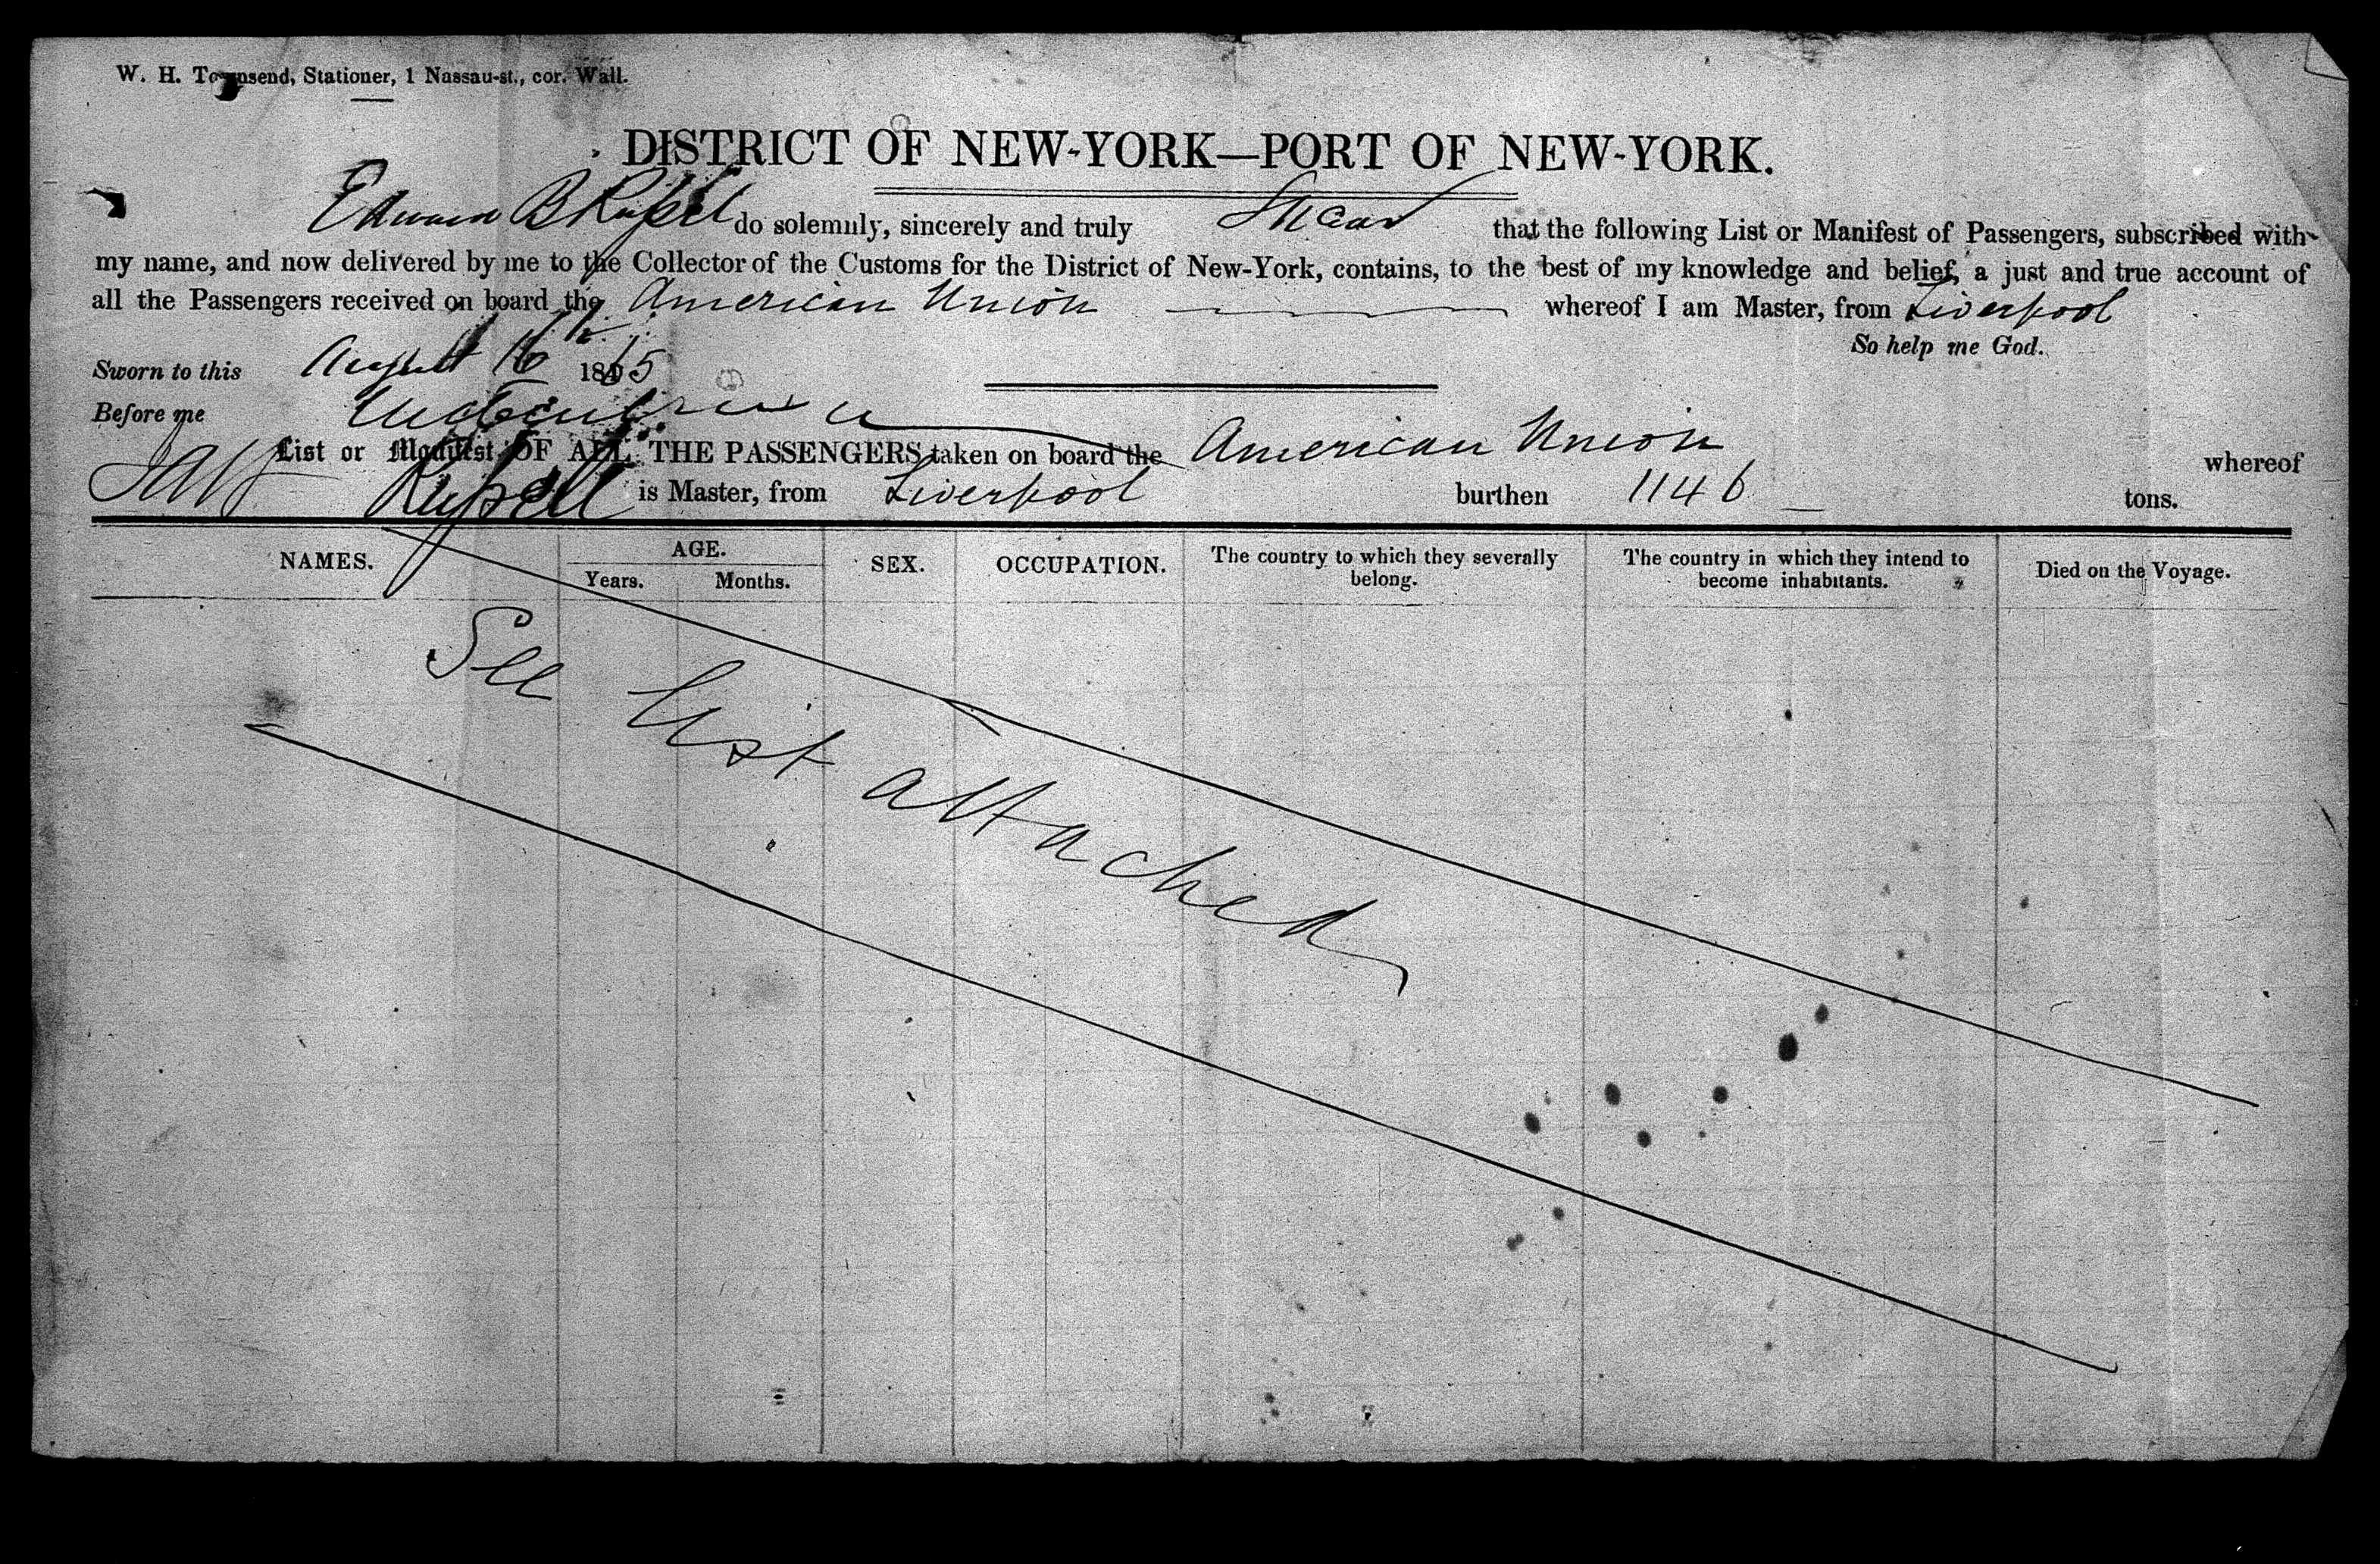 W. H. Townsend, Stationer, 1 Nassau-st., cor. Wall.
DISTRICT OF NEW-YORK—PORT OF NEW-YORK.
Edward B Russell do solemnly, sincerely and truly Swear that the following List or Manifest of Passengers, subscribed with
my name, and now delivered by me to the Collector of the Customs for the District of New-York, contains, to the best of my knowledge and belief, a just and true account of
all the Passengers received on board the American Union whereof I am Master, from Liverpool
So help me God.
Sworn to this August 16th 1865
Before me
List or Manifest OF ALL THE PASSENGERS taken on board the American Union whereof
Russell is Master, from Liverpool burthen 1146 tons.
NAMES. AGE. SEX. OCCUPATION. The country to which they severally belong. The country in which they intend to become inhabitants. Died on the Voyage.
Years. Months.
See list attached